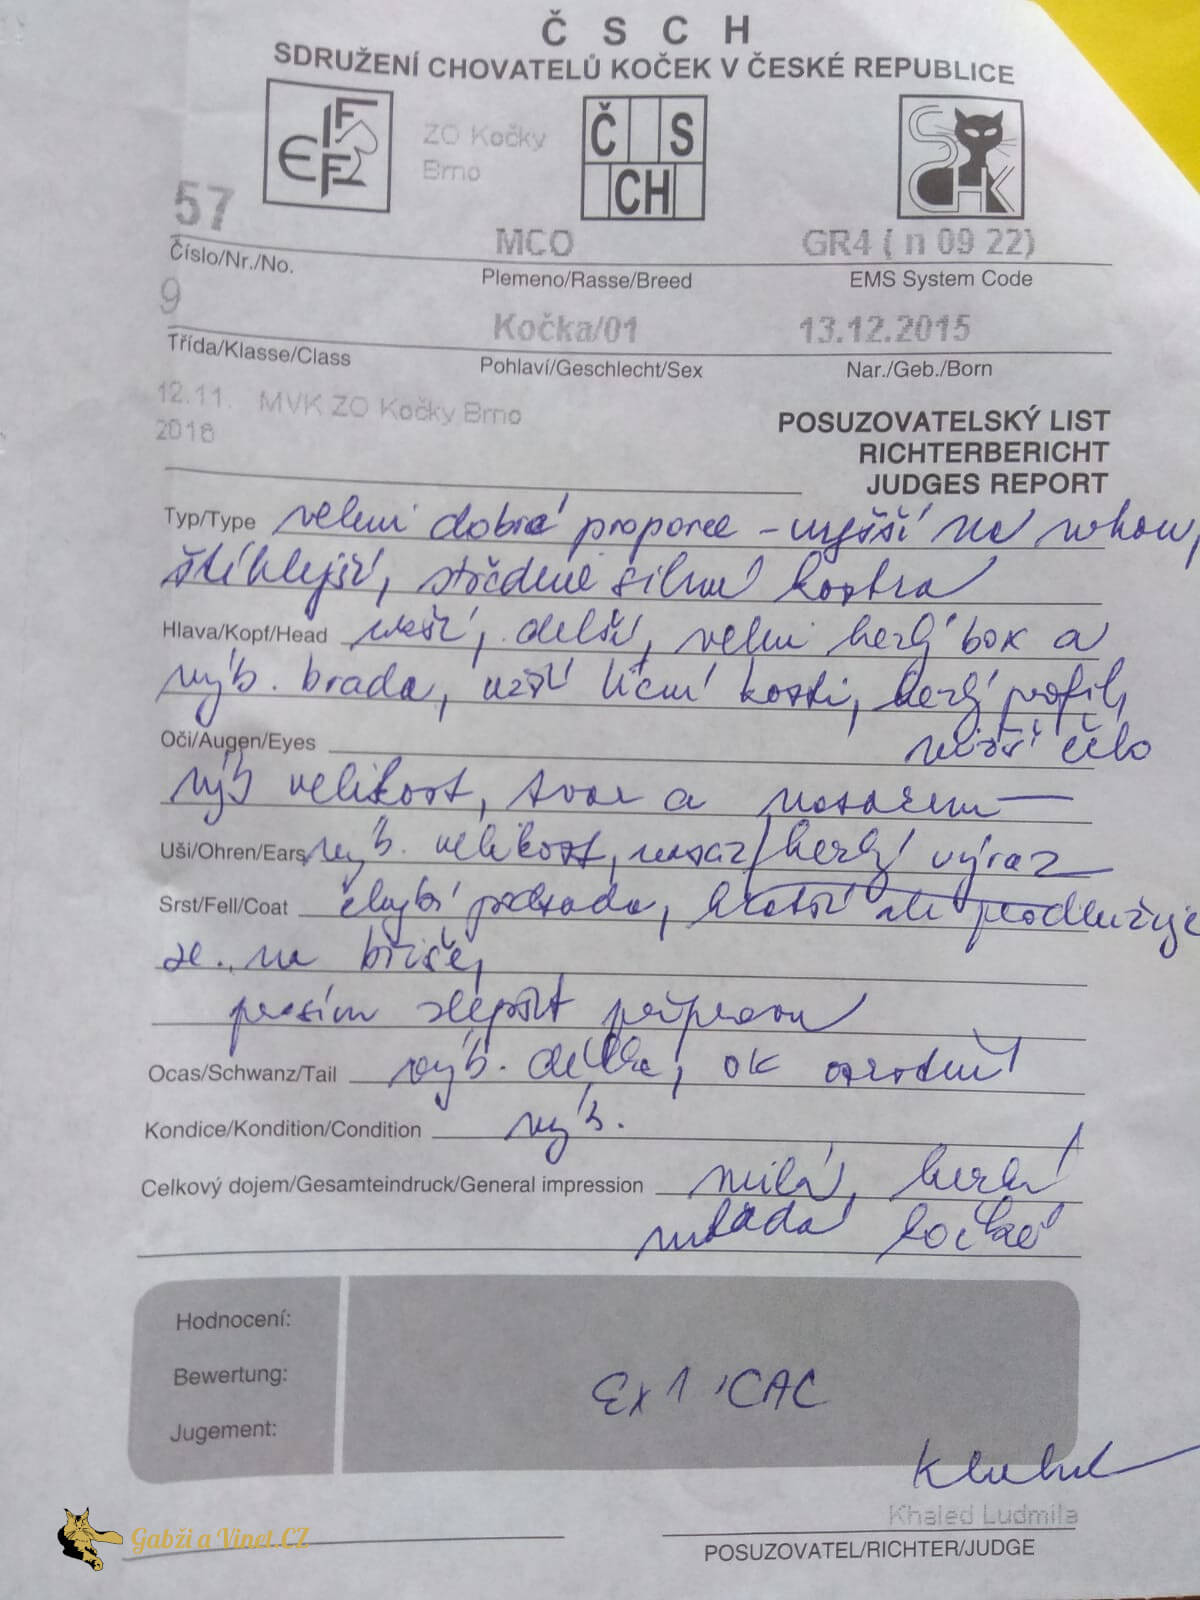 Č S C H
SDRUŽENÍ CHOVATELŮ KOČEK V ČESKÉ REPUBLICE
FIFE
ZO Kočky
Brno
Č S
CH
SCHK
57
MCO
GR4 ( n 09 22)
Číslo/Nr./No.
Plemeno/Rasse/Breed
EMS System Code
9
Kočka/01
13.12.2015
Třída/Klasse/Class
Pohlaví/Geschlecht/Sex
Nar./Geb./Born
12.11. MVK ZO Kočky Brno
2016
POSUZOVATELSKÝ LIST
RICHTERBERICHT
JUDGES REPORT
Typ/Type velmi dobré proporce - vyšší na nohou,
štíhlejší, středně silná kostra
Hlava/Kopf/Head menší, delší, velmi hezký box a
výb. brada, užší lícní kosti, hezký profil,
Oči/Augen/Eyes čelo
výb velikost, tvar a
Uši/Ohren/Ears výb. velikost, nasaz/hezký výraz
Srst/Fell/Coat chybí podsada, kratší ale prodlužuje
se.. na břiše,
prosím zlepšit přípravu
Ocas/Schwanz/Tail výb. délka, ok
Kondice/Kondition/Condition výb.
Celkový dojem/Gesamteindruck/General impression milá, hezká
mladá kočka
Hodnocení:
Bewertung:
Jugement:
Ex 1 , CAC
Khaled Ludmila
POSUZOVATEL/RICHTER/JUDGE
Gabži a Vinet.CZ